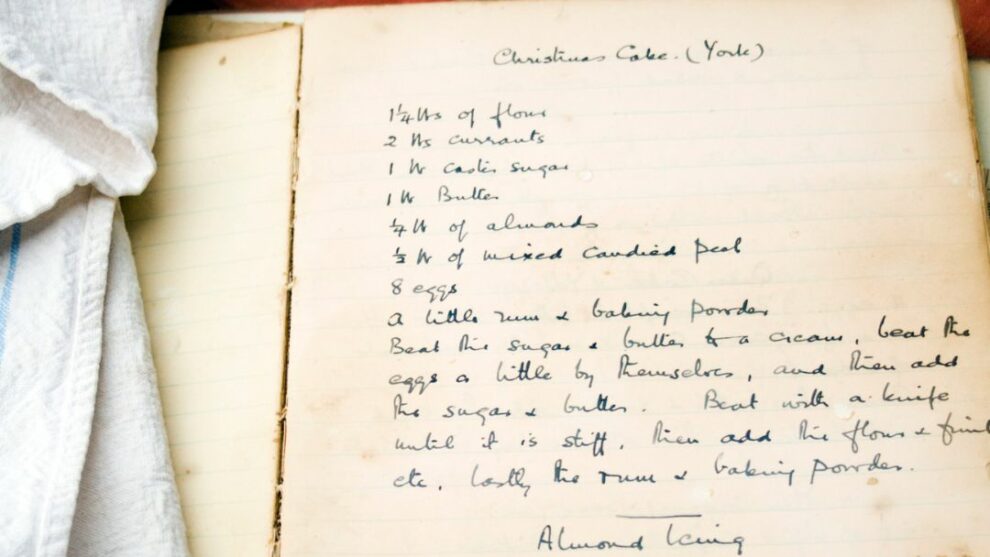 Christmas Cake. (York)
1¼ lbs of flour
2 lbs currants
1 lb castor sugar
1 lb Butter
¼ lb of almonds
½ lb of mixed candied peel
8 eggs
a little rum & baking powder
Beat the sugar & butter to a cream, beat the
eggs a little by themselves, and then add
the sugar & butter. Beat with a knife
until it is stiff, then add the flour & fruit
etc, lastly the rum & baking powder.
Almond Icing